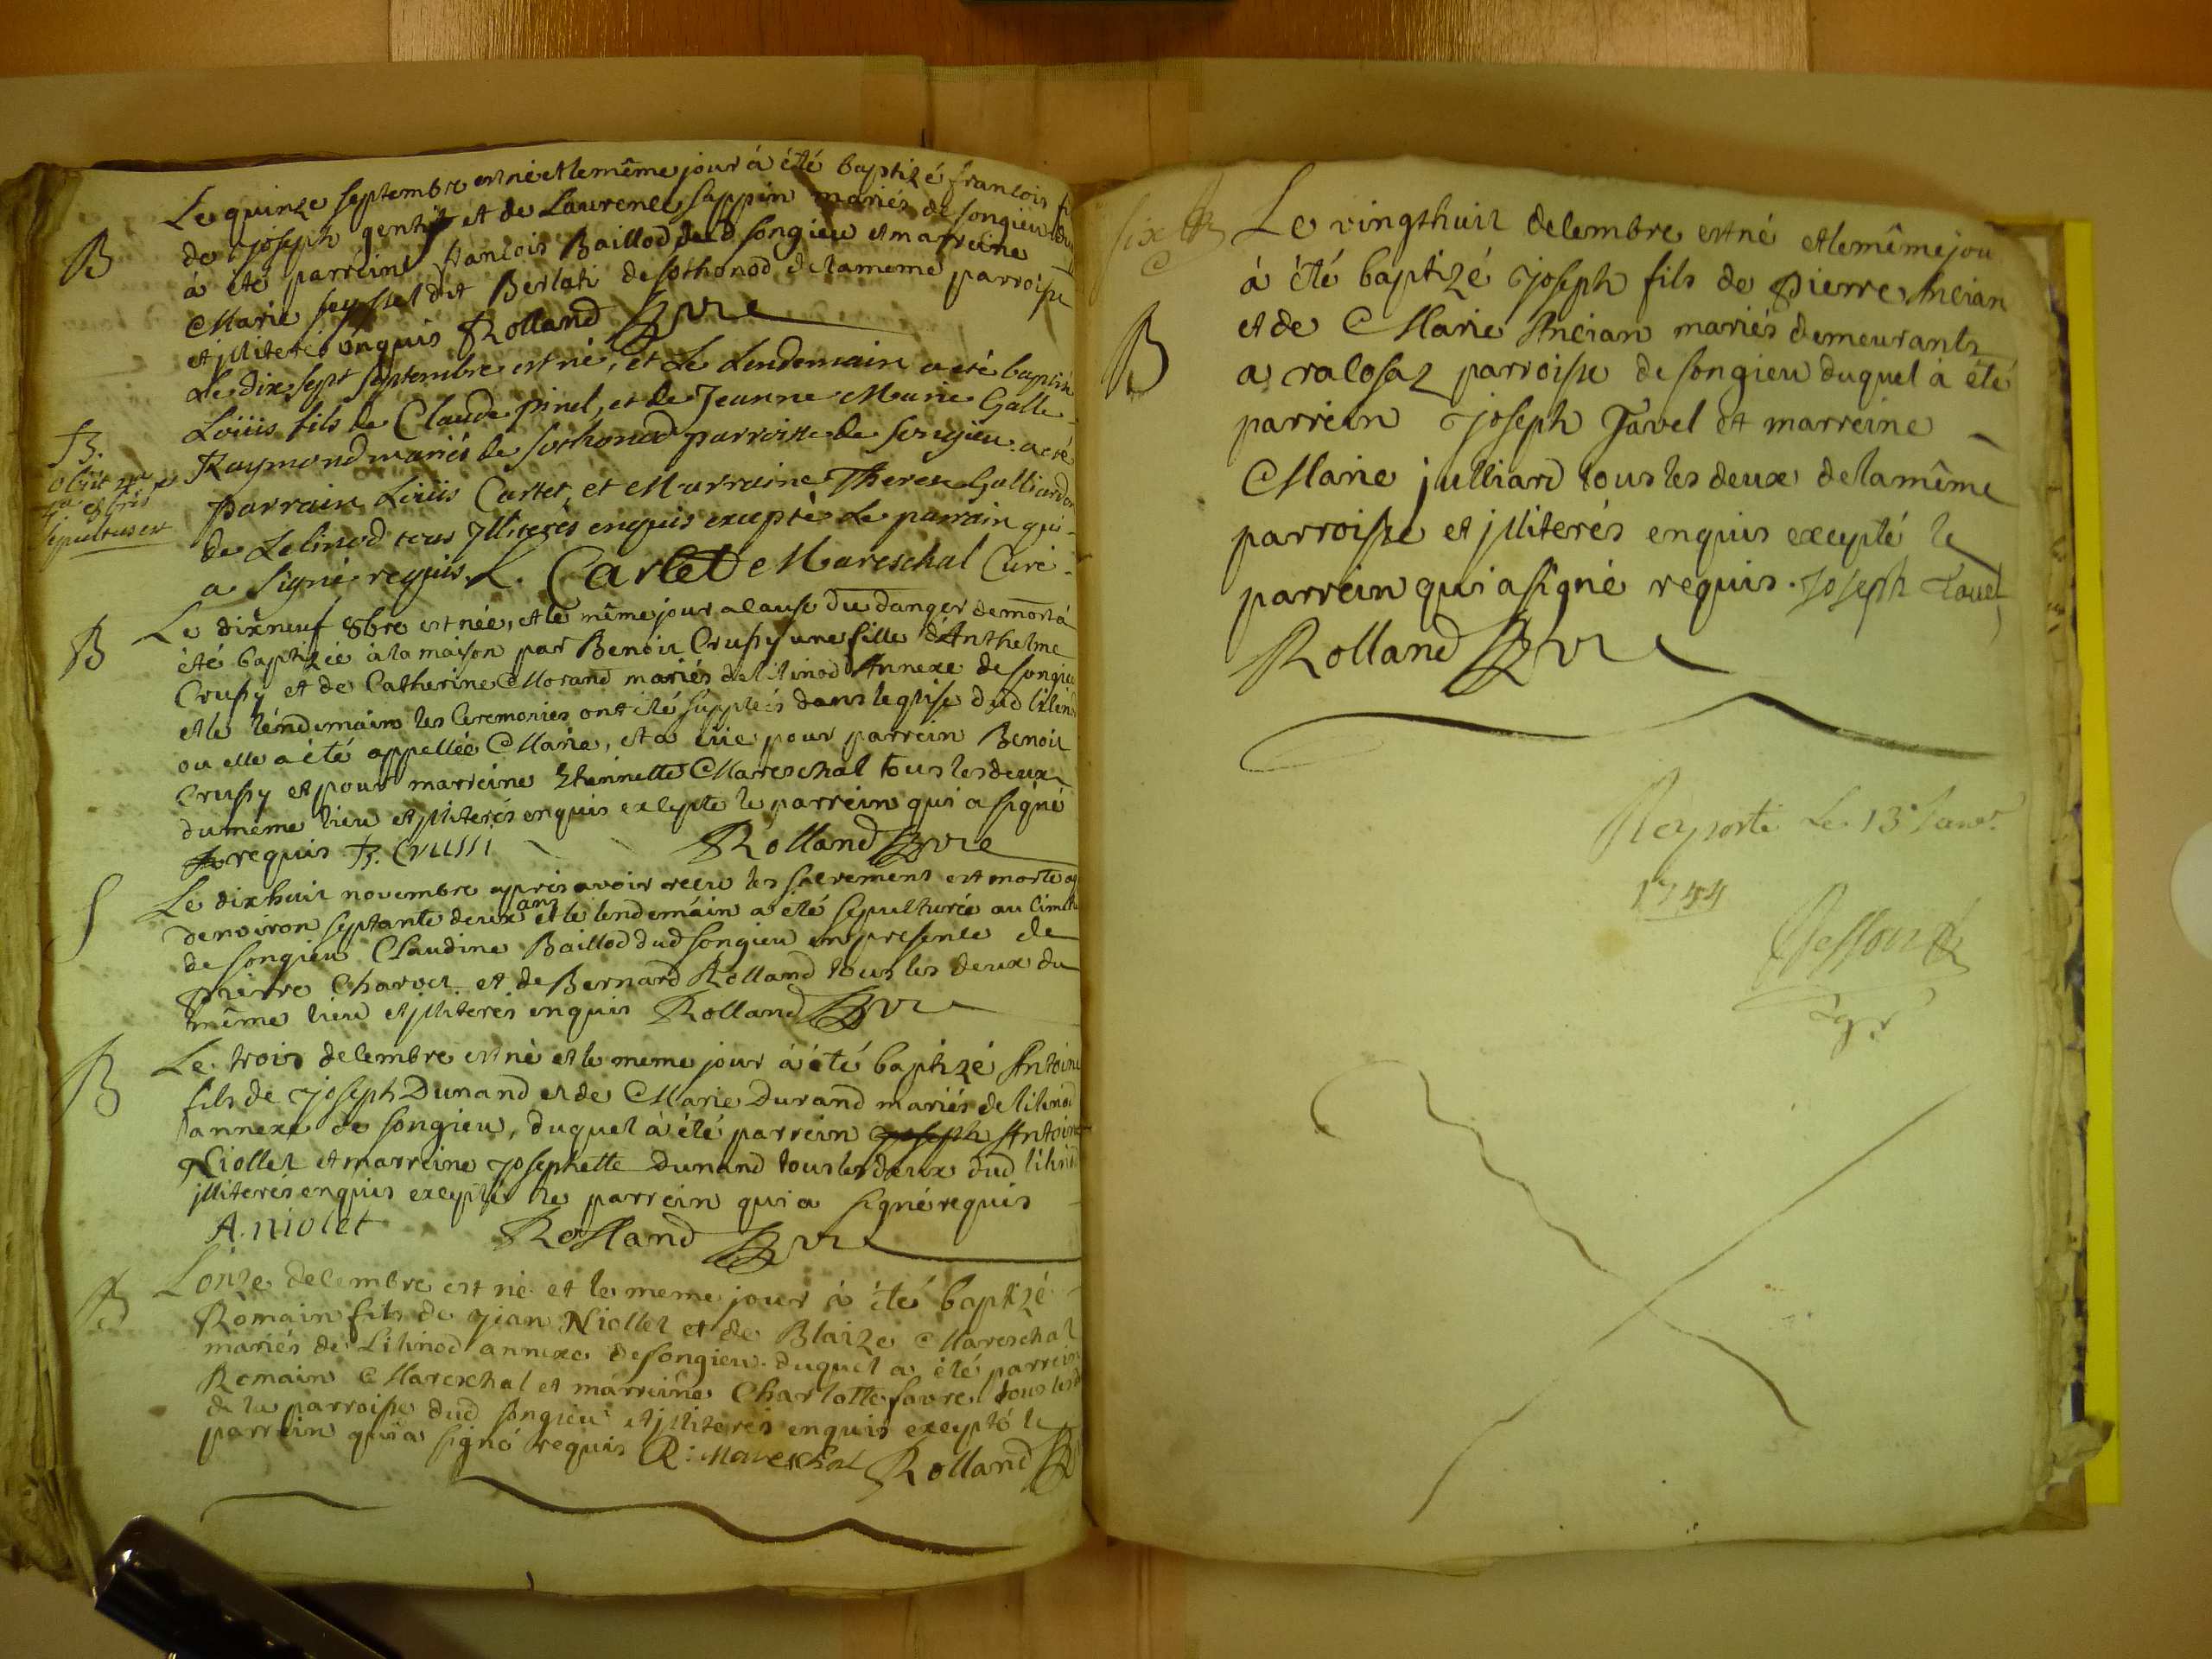 B
Le quinze septembre est né et le même jour à été baptizé francois fi
de Joseph gentil et de Laurence Sappin mariés de songieu du
à été parrein francois Baillod dud songieu et marreine
Marie seyssel dit Berlati de sothonod de la meme parroisse
et jlliterés enquis Rolland Curé
B.
obiit
sepultus est
Le dix sept septembre est né, et Le Lendemain a eté baptisé
Loüis fils de Claude pinel, et de Jeanne Marie Galle
Raymond mariés de sothonod parroisse de songieu. a eté
Parrain Loüis Carlet, et Marraine Therese Galliardon
de Lelinod tous Jlliterés enquis excepté Le parrain qui
a Signé requis. L. Carlet Mareschal Curé
B
Le dixneuf 8bre est née, et le même jour a cause du danger de mort á
été baptizée à la maison par Benoit Crussy une fille d'Anthelme
Crussy et de Catherine Morand mariés de lilinod Annexe de songieu
et le lendemain les Ceremonies ont été suppleés dans leglise dud lilinod
ou elle a été appellée Marie, et a eüe pour parrein Benoit
Crussy et pour marreine Ethiennette Mareschal tous les deux
du même lieu et jlliterés enquis excepté le parrein qui a signé
requis B. Crussi Rolland Curé
S
Le dixhuit novembre apres avoir receu les sacrements est morte ag
denviron septante deux ans et le lendemain a été sepulturée au Cimeti
de songieu Claudine Baillod dud songieu en presence de
pierre Charvet et de Bernard Rolland tous les deux du
même lieu et jlliterés enquis Rolland Curé
B
Le trois decembre est né et le meme jour à été baptizé Antoine
fils de Joseph Dunand et de Marie Durand mariés de lilinod
annexe de songieu, duquel à été parrein Joseph Antoine
Niollet et marreine Josephette Dunand tous les deux dud lilinod
jlliterés enquis excepté le parrein qui a signé requis
A. niolet Rolland Curé
B
Lonze decembre est né et le meme jour à été baptizé
Romain fils de jean Niollet et de Blaize Mareschal
mariés de Lilinod annexe de songieu. duquel a été parrein
Romain Mareschal et marreine Charlotte favre tous les d
de la parroisse dud songieu et jlliterés enquis excepté le
parrein qui a signé requis R: Mareschal Rolland
six
B
Le vingthuit decembre est né et le même jou
à été baptizé Joseph fils de Pierre Ancian
et de Marie Ancian mariés demeurants
a valosaz parroisse de songieu duquel à été
parrein Joseph Favel et marreine
Marie julliard tous les deux de la même
parroisse et jlliterés enquis excepté le
parrein qui a signé requis. Joseph
Rolland Curé
Reporté Le 13e Janvr
1744